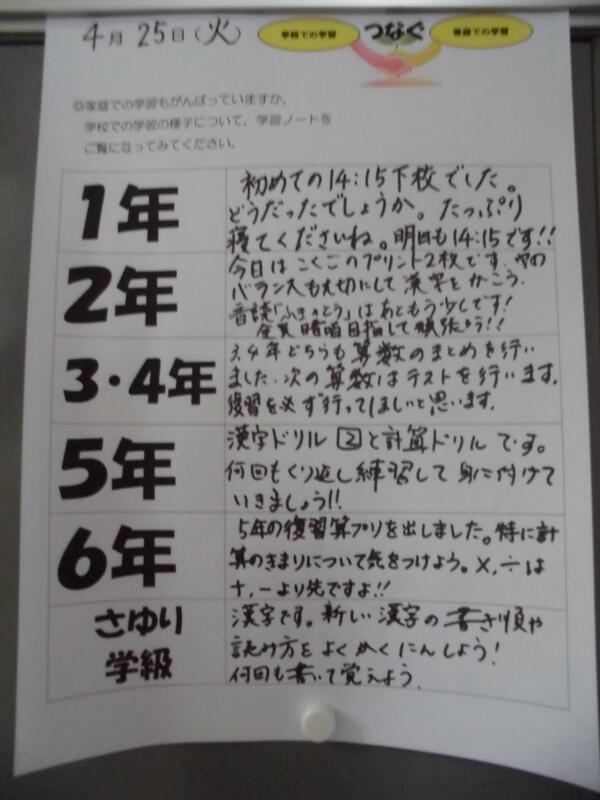 4月 25日(火)
学校での学習
つなぐ
家庭での学習
◎家庭での学習もがんばっていますか。
学校での学習の様子について、学習ノートを
ご覧になってみてください。
1年
初めての14:15下校でした。
どうだったでしょうか。たっぷり
寝てくださいね。明日も14:15です!!
2年
今日はこくごのプリント2枚です。字の
バランスも大切にして漢字をかこう。
音読「ふきのとう」はあともう少しです!
全員暗唱目指して頑張ろう!!
3・4年
3,4年どちらも算数のまとめを行い
ました。次の算数はテストを行います。
復習を必ず行ってほしいと思います。
5年
漢字ドリル②と計算ドリルです。
何回もくり返し練習して身に付けて
いきましょう!!
6年
5年の復習算プリを出しました。特に計
算のきまりについて気をつけよう。×,÷は
+,-より先ですよ!!
さゆり
学級
漢字です。新しい漢字の書き順や
読み方をよくかくにんしよう!
何回も書いて覚えよう。